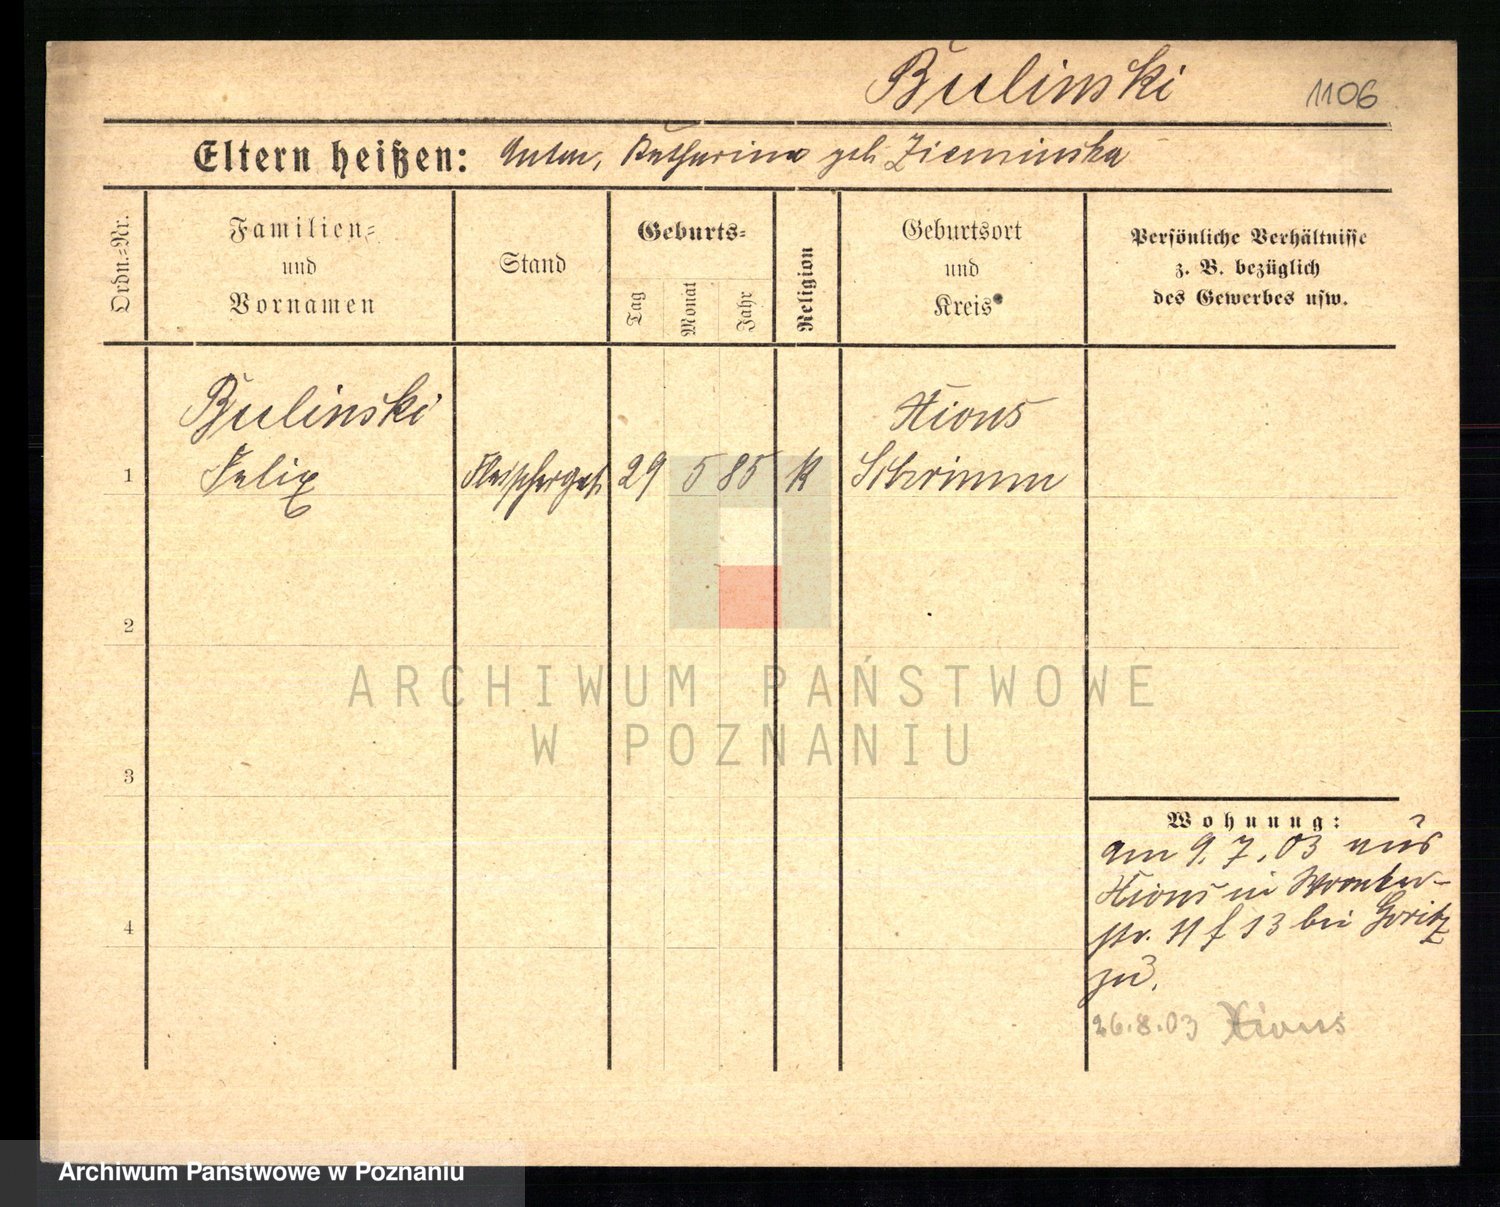 Bulinski
1106
Eltern heißen: Anton, Katharina geb Zieminska
Ordn.=Nr.
Familien=
und
Vornamen
Stand
Geburts=
Tag
Monat
Jahr
Religion
Geburtsort
und
Kreis
Persönliche Verhältnisse
z. B. bezüglich
des Gewerbes usw.
Bulinski
Xions
1 Felix Fleischerges. 29 5 85 K Schrimm
2
3
4
Wohnung:
am 9. 7. 03 aus
Xions in Wronker-
str. 11 f 13 bei Goritz
zu.
26.8.03 Xions
ARCHIWUM PAŃSTWOWE
W POZNANIU
Archiwum Państwowe w Poznaniu